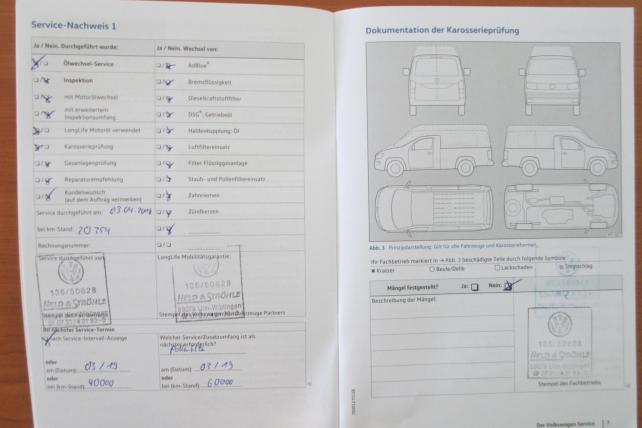 Service-Nachweis 1
Ja / Nein. Durchgeführt wurde:
Ölwechsel-Service
Inspektion
mit Motorölwechsel
mit erweitertem
Inspektionsumfang
LongLife Motoröl verwendet
Karosserieprüfung
Gasanlagenprüfung
Reparaturempfehlung
Kundenwunsch
(auf dem Auftrag vermerken)
Service durchgeführt am:
bei km-Stand: 20 754
Rechnungsnummer:
Service durchgeführt von:
136/50628
HELD & STRÖHLE
Ihr nächster Service-Termin
nach Service-Intervall-Anzeige
oder
am (Datum): 03/19
oder
bei (km-Stand): 40000
Ja / Nein. Wechsel von:
AdBlue®
Bremsflüssigkeit
Dieselkraftstofffilter
DSG®: Getriebeöl
Haldexkupplung: Öl
Luftfiltereinsatz
Filter Flüssiggasanlage
Staub- und Pollenfiltereinsatz
Zahnriemen
Zündkerzen
LongLife Mobilitätsgarantie:
136/50628
HELD & STRÖHLE
Welcher Service/Zusatzumfang ist als
nächster erforderlich?
am (Datum): 03/19
oder
bei (km-Stand): 60000
Dokumentation der Karosserieprüfung
Abb. 3 Prinzipdarstellung: Gilt für alle Fahrzeuge und Karosserieformen.
Ihr Fachbetrieb markiert in → Abb. 3 beschädigte Teile durch folgende Symbole:
Kratzer
Beule/Delle
Lackschaden
Steinschlag
Mängel festgestellt? Ja: Nein:
Beschreibung der Mängel:
HELD & STRÖHLE
Stempel des Fachbetriebs
Der Volkswagen Service 7